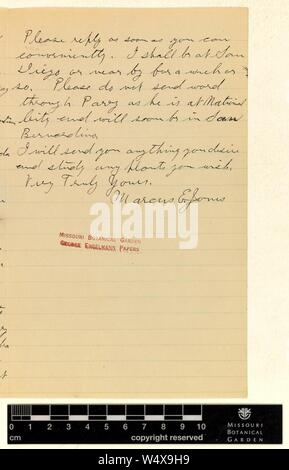 Please reply as soon as you can
conveniently. I shall be at San
Diego or near by for a week or
so. Please do not send word
through Parry as he is at National
City and will soon be in San
Bernardino.
I will send you anything you desire
and study any plants you wish.
Very Truly Yours.
Marcus E. Jones
MISSOURI BOTANICAL GARDEN
GEORGE ENGELMANN PAPERS
0 1 2 3 4 5 6 7 8 9 10
cm copyright reserved
MISSOURI
BOTANICAL
GARDEN
a alamy stock photo
W4X9H9